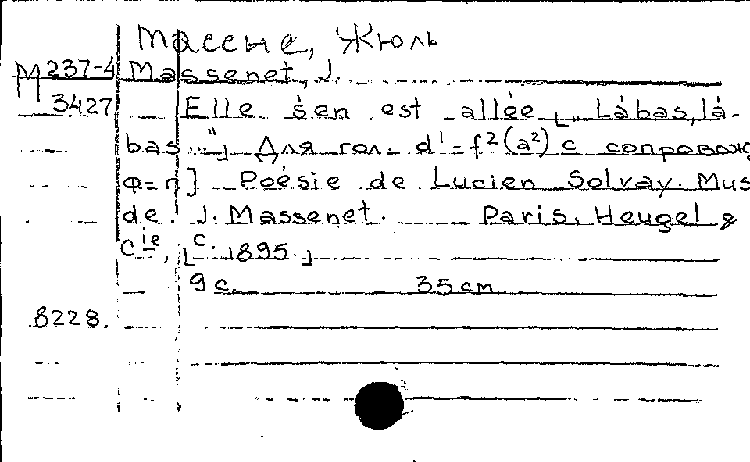 Массне, Жюль
М 237-4 Massenet, J.
3427 Elle s'en est allée [„Làbas, là-
bas..."] Для гол. d¹-f²(a²) с сопровож
ф=п] Poésie de Lucien Solvay. Mus
de J. Massenet. Paris, Heugel &
Cie, [c. 1895]
9 c. 35 cm
8228.